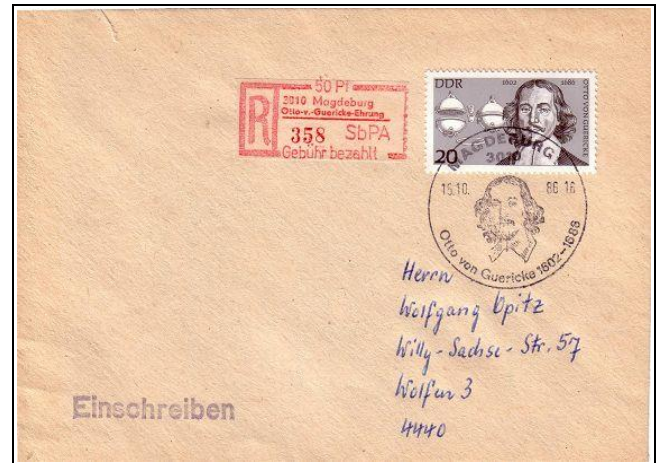 50 Pf
R
3010 Magdeburg
Otto-v.-Guericke-Ehrung
358 SbPA
Gebühr bezahlt
DDR 1602 1686
OTTO VON GUERICKE
20
MAGDEBURG 1
3010
15.10. 86 16
Otto von Guericke 1602-1686
Herrn
Wolfgang Opitz
Willy-Sachse-Str. 57
Wolfen 3
4440
Einschreiben